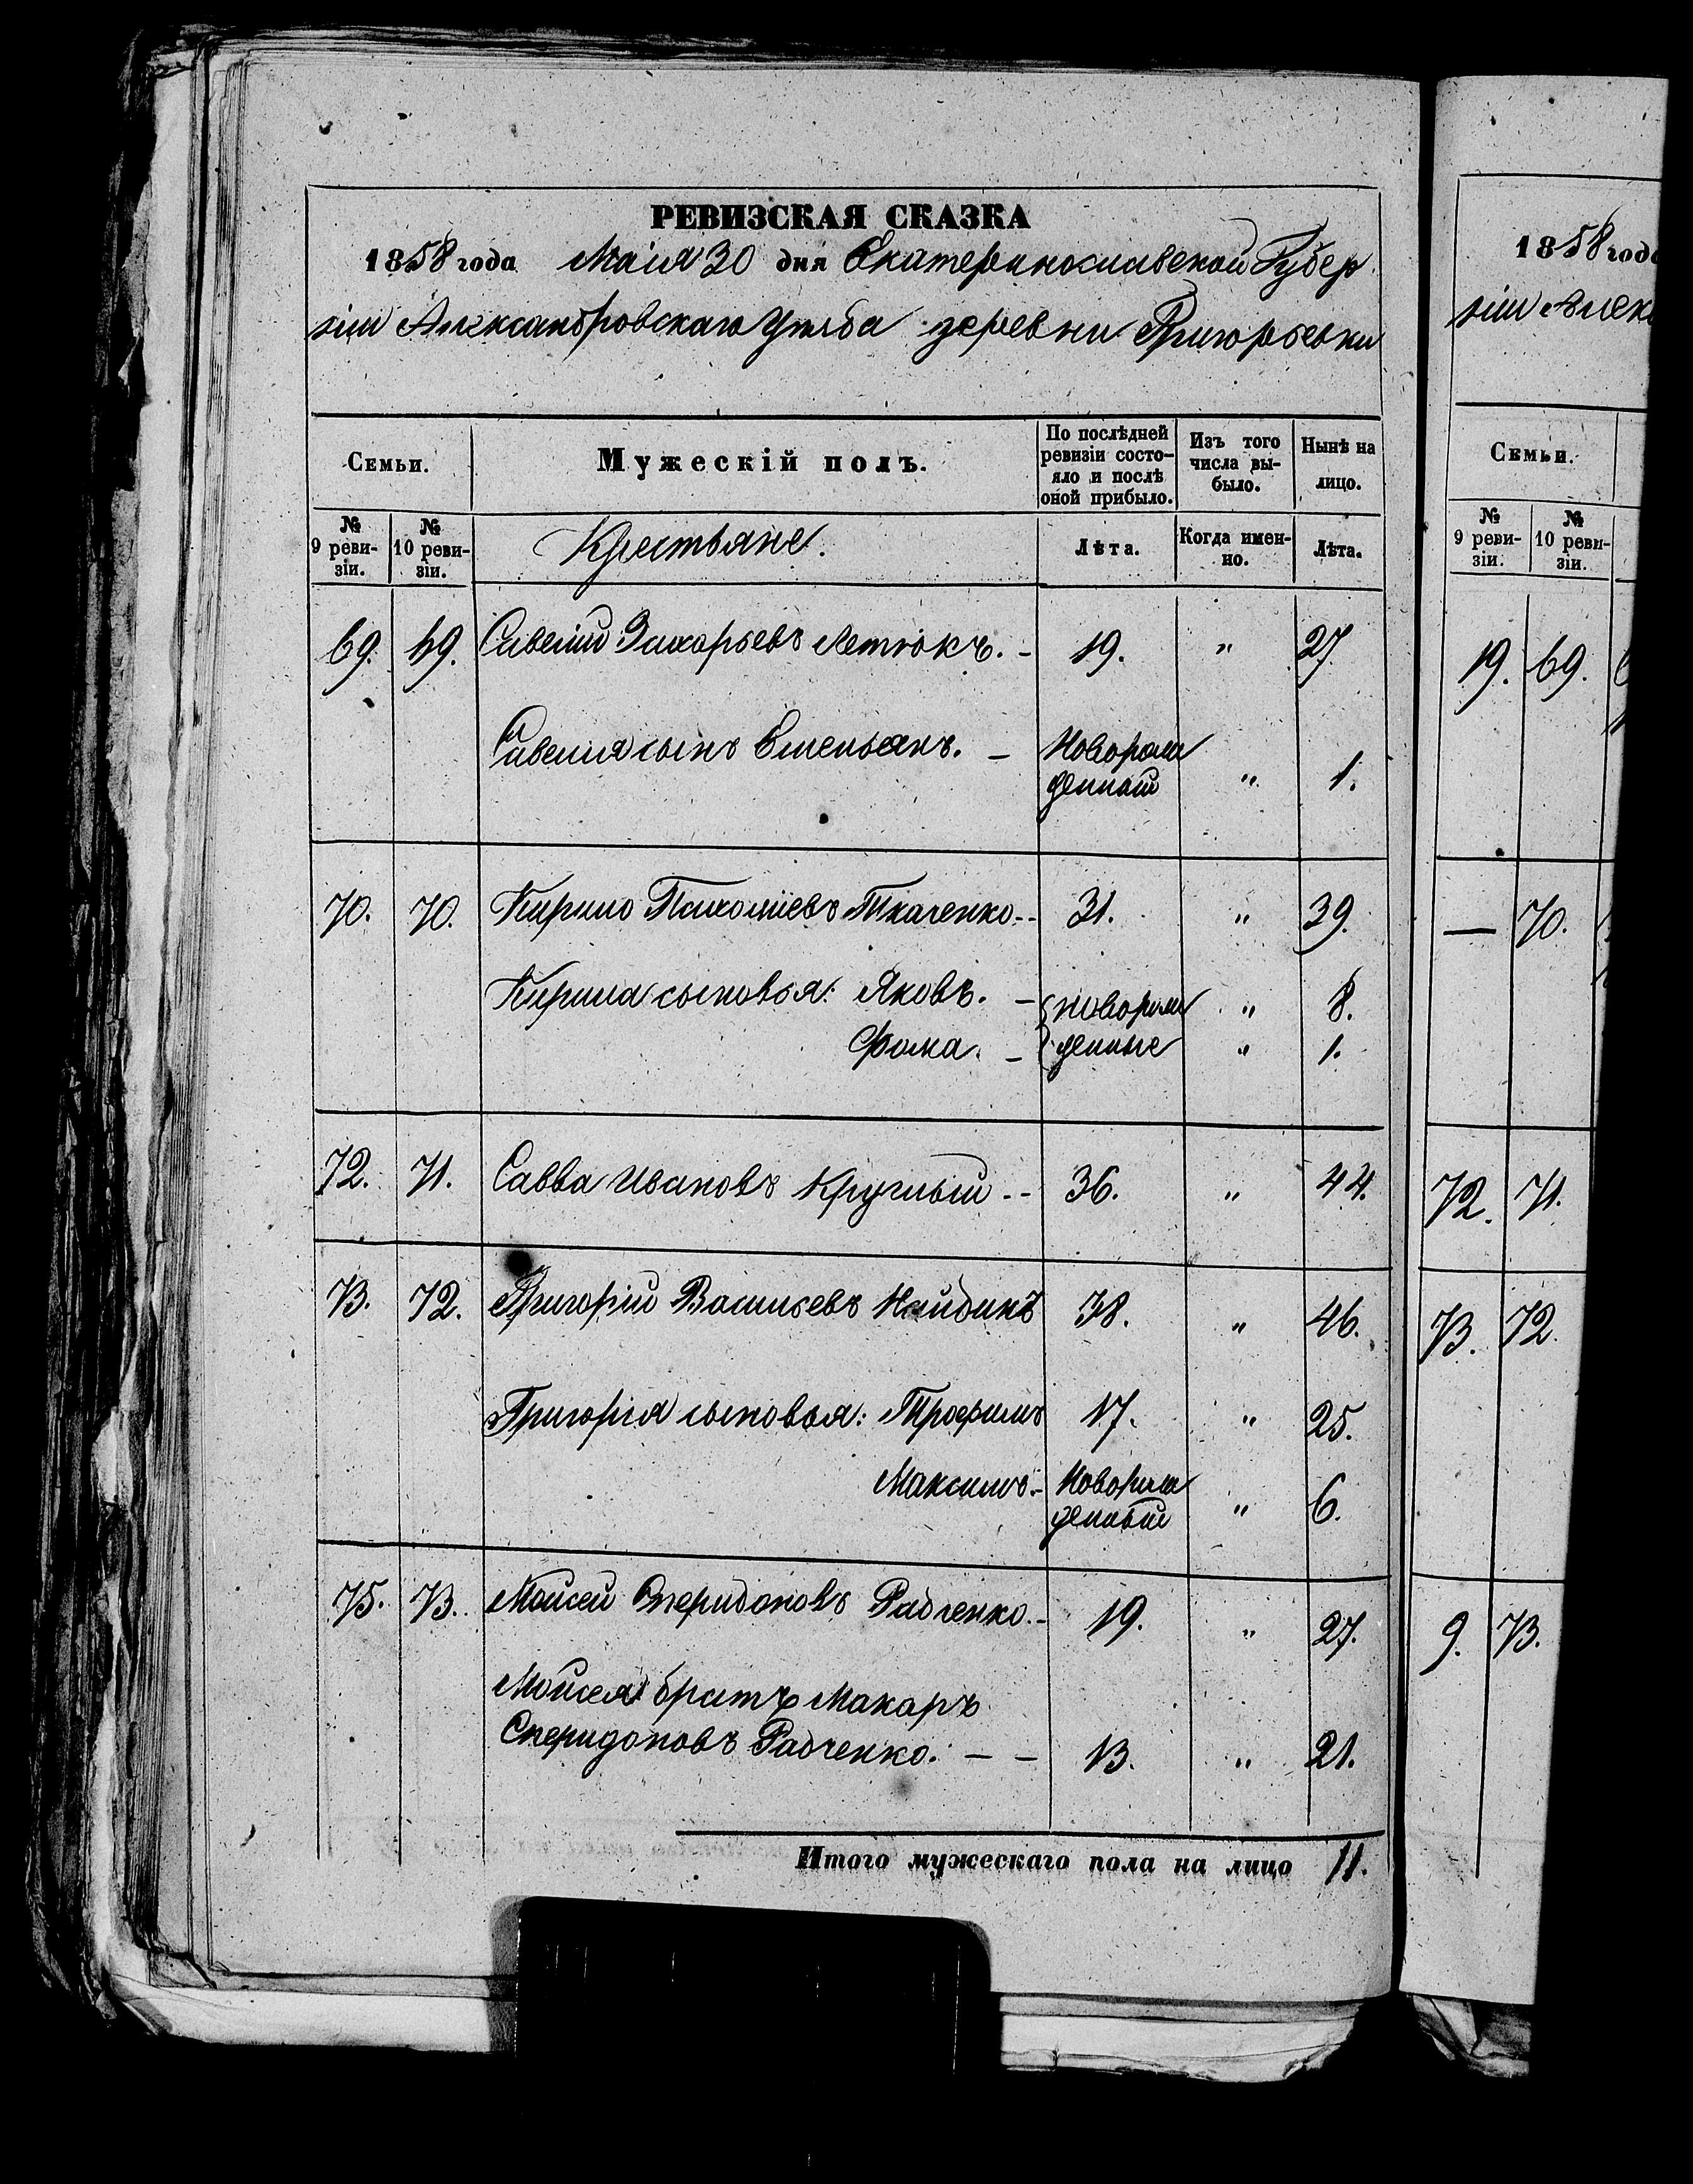 РЕВИЗСКАЯ СКАЗКА
1858 года Маія 30 дня Екатеринославской Губер
ніи Александровскаго Уѣзда деревни Григорьевки
Семьи. Мужескій полъ. По послѣдней ревизіи состо-яло и послѣ оной прибыло. Изъ того числа вы-было. Нынѣ на лицо.
№ 9 реви-зіи. № 10 реви-зіи. Крестьяне. Лѣта. Когда имен-но. Лѣта.
69. 69. Савелій Захарьевъ Летюкъ. - 19. " 27
Савелія сынъ Емельянъ. - Новорож
денный " 1.
70. 70. Кирило Пахоміевъ Ткаченко -- 31. " 39.
Кирила сыновья: Яковъ. - новорож " 8.
Фома. - денные " 1.
72. 71. Савва Ивановъ Круглый -- 36. " 44.
73. 72. Григорій Васильевъ Найдинъ 38. " 46.
Григорія сыновья: Трофимъ 17. " 25.
Максимъ - Новорож
денный " 6.
75. 73. Мойсей Сперидоновъ Радченко. - 19. " 27.
Мойсея братъ Макаръ
Сперидоновъ Радченко. - - 13. " 21.
Итого мужескаго пола на лицо 11.
1858 года
ніи Алек
Семьи.
№ 9 реви-зіи. № 10 реви-зіи.
19. 69.
— 70.
72. 71.
73. 72.
9. 73.